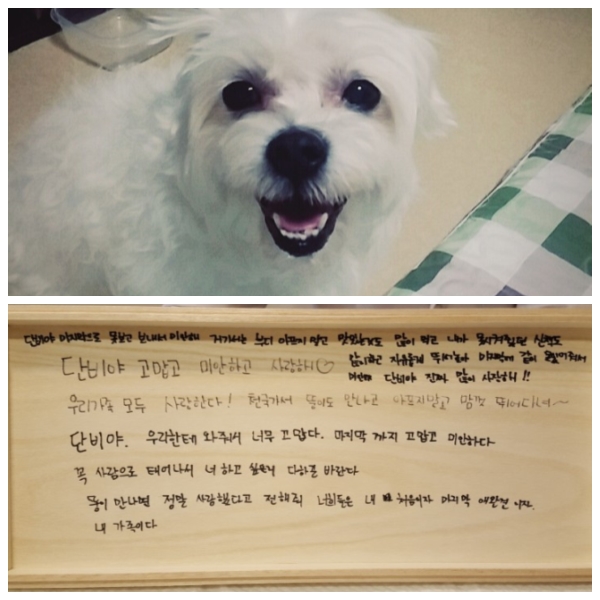 단비야 마지막으로 못보고 보내서 미안해 거기서는 부디 아프지 말고 맛있는것도 많이 먹고 나가 못시켜줬던 산책도
많이하고 자유롭게 뛰어놀아 이쁘게 같이
미안해 단비야 진짜 많이 사랑해!!
단비야 고맙고 미안하고 사랑해♡
우리가족 모두 사랑한다! 천국가서 똘이도 만나고 아프지말고 맘껏 뛰어다녀~
단비야. 우리한테 와줘서 너무 고맙다. 마지막 까지 고맙고 미안하다
꼭 사람으로 태어나서 너 하고 싶은거 다하길 바란다
똘이 만나면 정말 사랑했다고 전해줘 너희들은 내 처음이자 마지막 애완견 이자.
내 가족이다